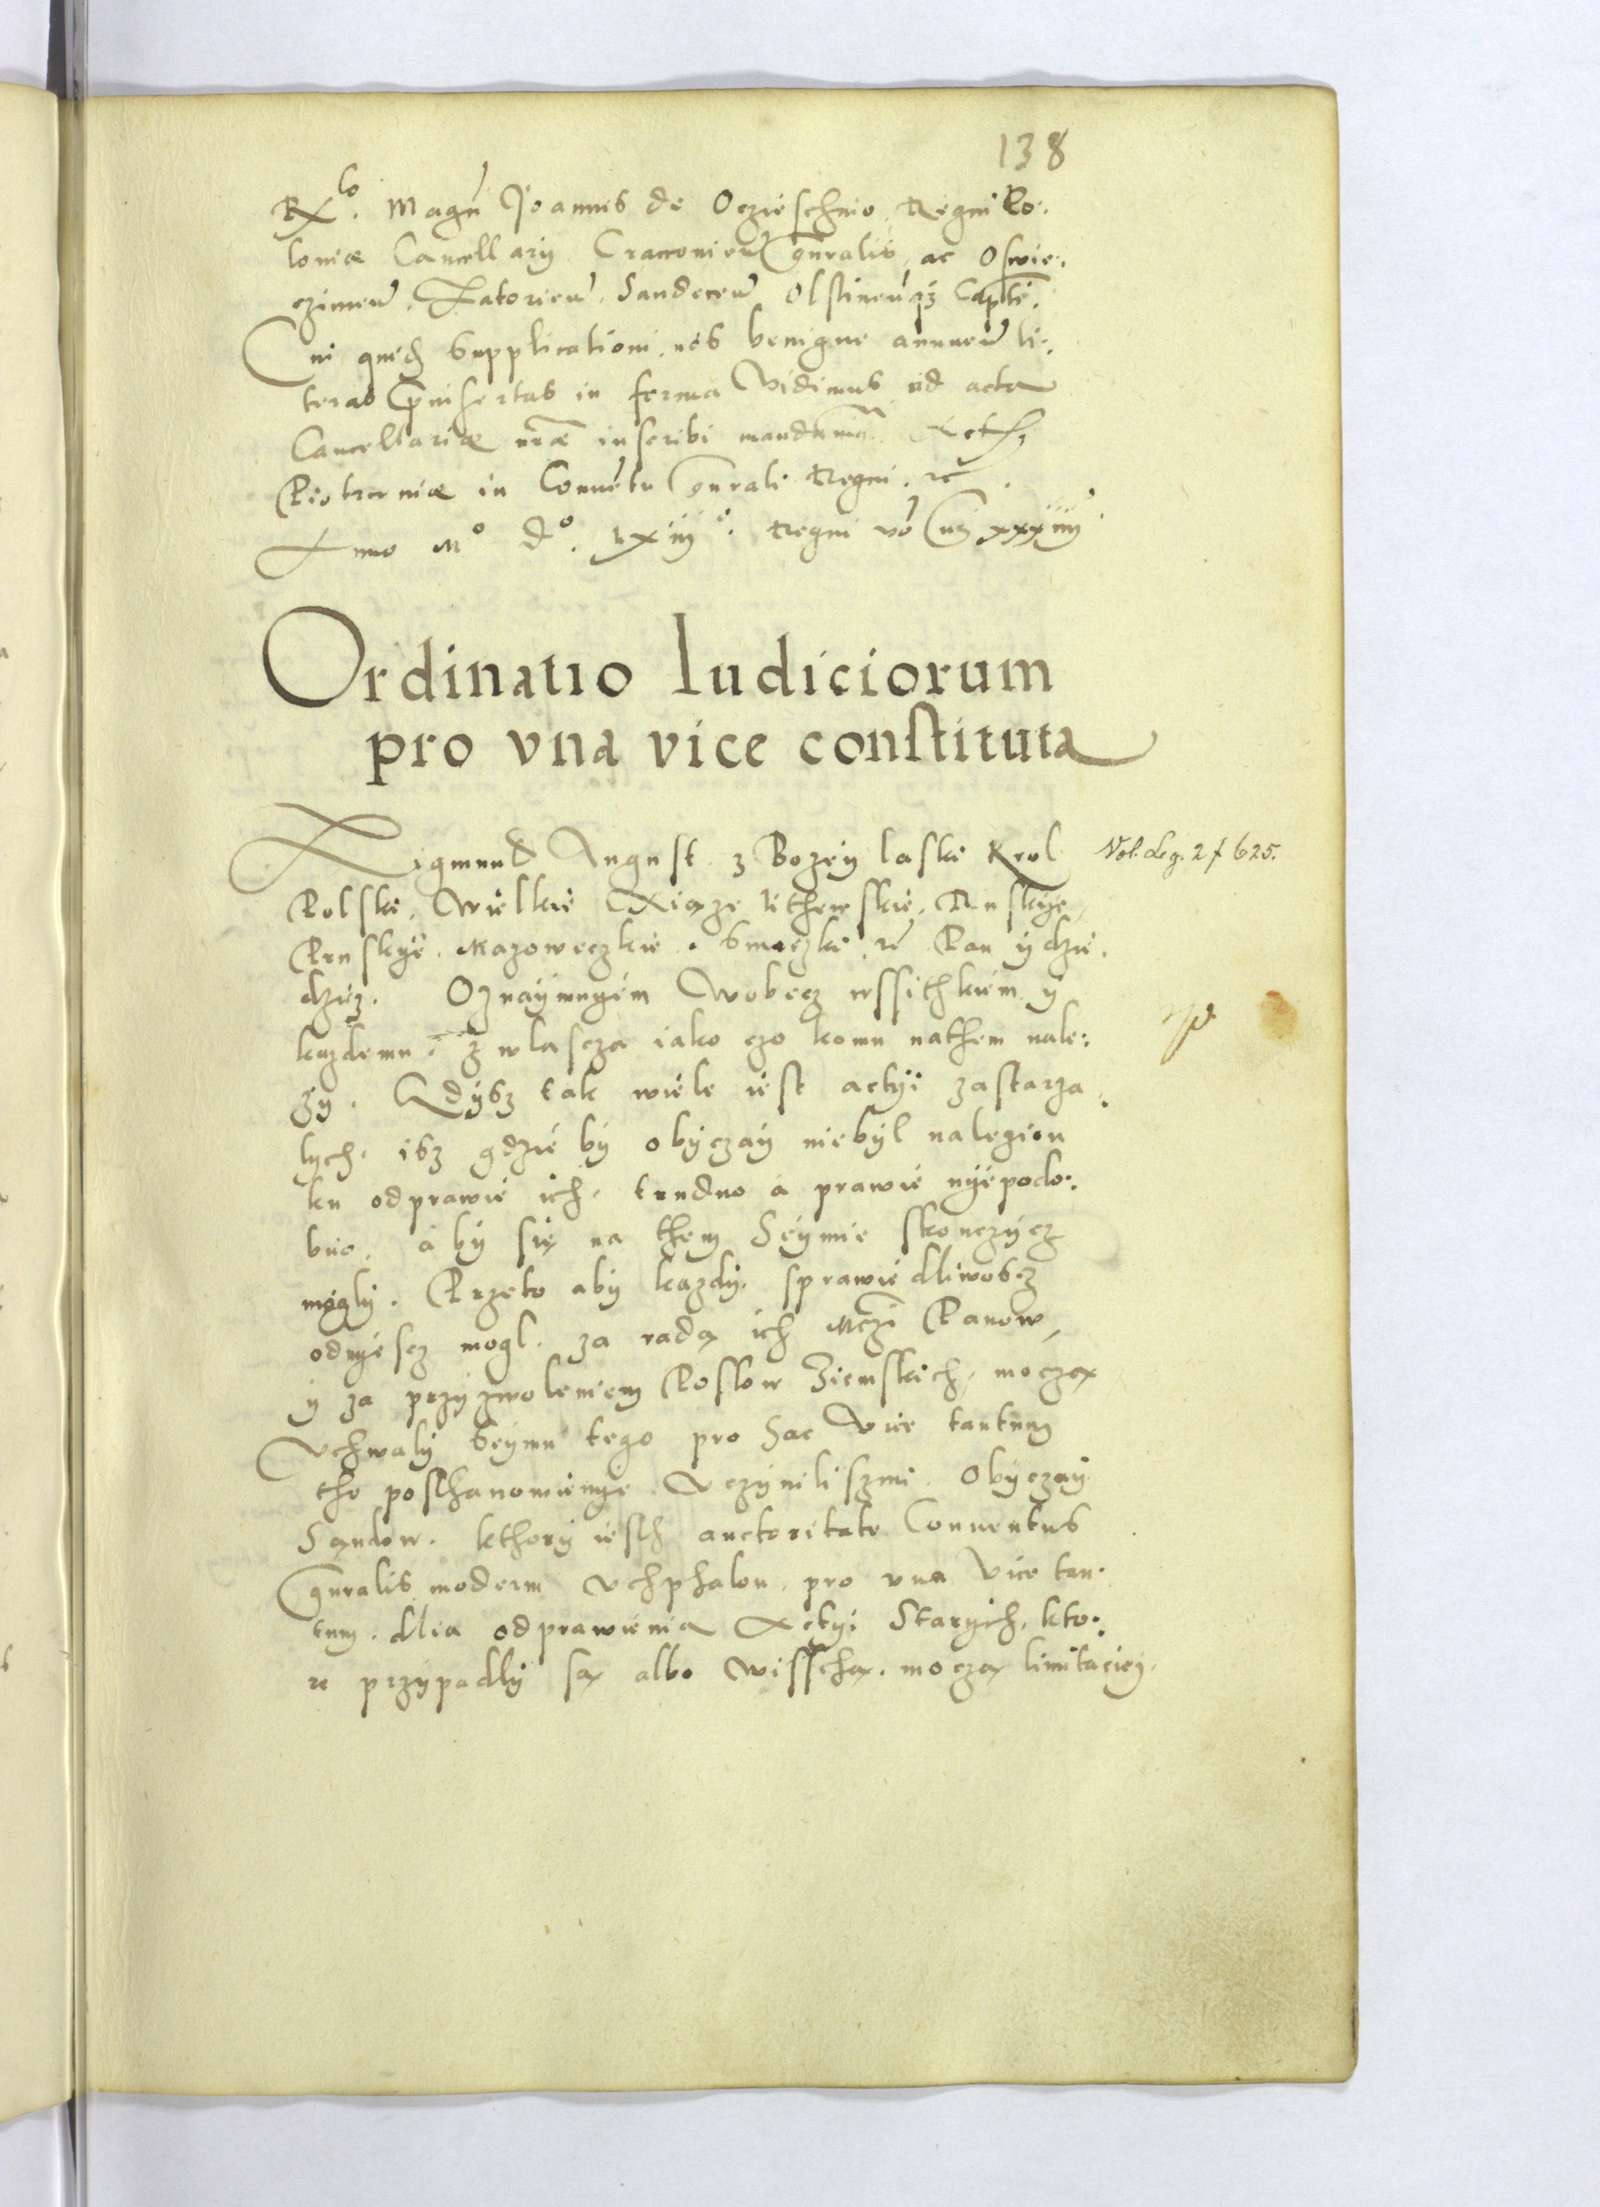 138
Rlo. Magci Joannis de Oczieschnio Regni Po:
loniæ Cancellarij Cracovien gnralis ac Oswie:
czimen. Zatorien. Sandecen Olstinenqz Capti.
Cui quidē supplicationi nos benigne annuen li:
teras pinsertas in forma Vidimus ad acta
Cancellariæ nræ inscribi mandavims.
Piotrcoviæ in Conventu gnrali Regni. rc
Anno Mo do. Lxiijo. Regni vō nri xxxiiij
Ordinatio Iudiciorum
pro vna vice constituta
Zigmund August z Bozey laski Krol
Vol. Leg. 2 f 625.
Polski, Wielkie Xiąze lithewskie, Ruskye,
Pruskye. Mazoweczkie. Smuczki rc Pan y dzie:
dzicz. Oznaymugem wobecz wssithkiem y
kazdemu. zwlascza iako czo komu nathem nale:
zy. Gdysz tak wiele iest actyi zastarza:
lych. isz gdzie by obyczay niebyl nalezion
ku odprawie ich. trudno a prawie nyepodo:
bno. aby się na them Seymie skonczycz
mogly. Przeto aby kazdy. sprawiedliwoscz
odnyescz mogl. za radą ich Mczi Panow,
y za przyzwoleniem Poslow Ziemskich, moczą
Uchwaly Seymu tego pro hac Vice tantum
tho posthanowienye Uczynilismi. Obyczay
Sąndow. kthory iesth auctoritate Conventus
gnralis moderni Uchphalon. pro una Vice tan:
tum. dlia odprawienia Actyi Starych. kto:
re przypadly są albo wissthą. moczą limitaciey.